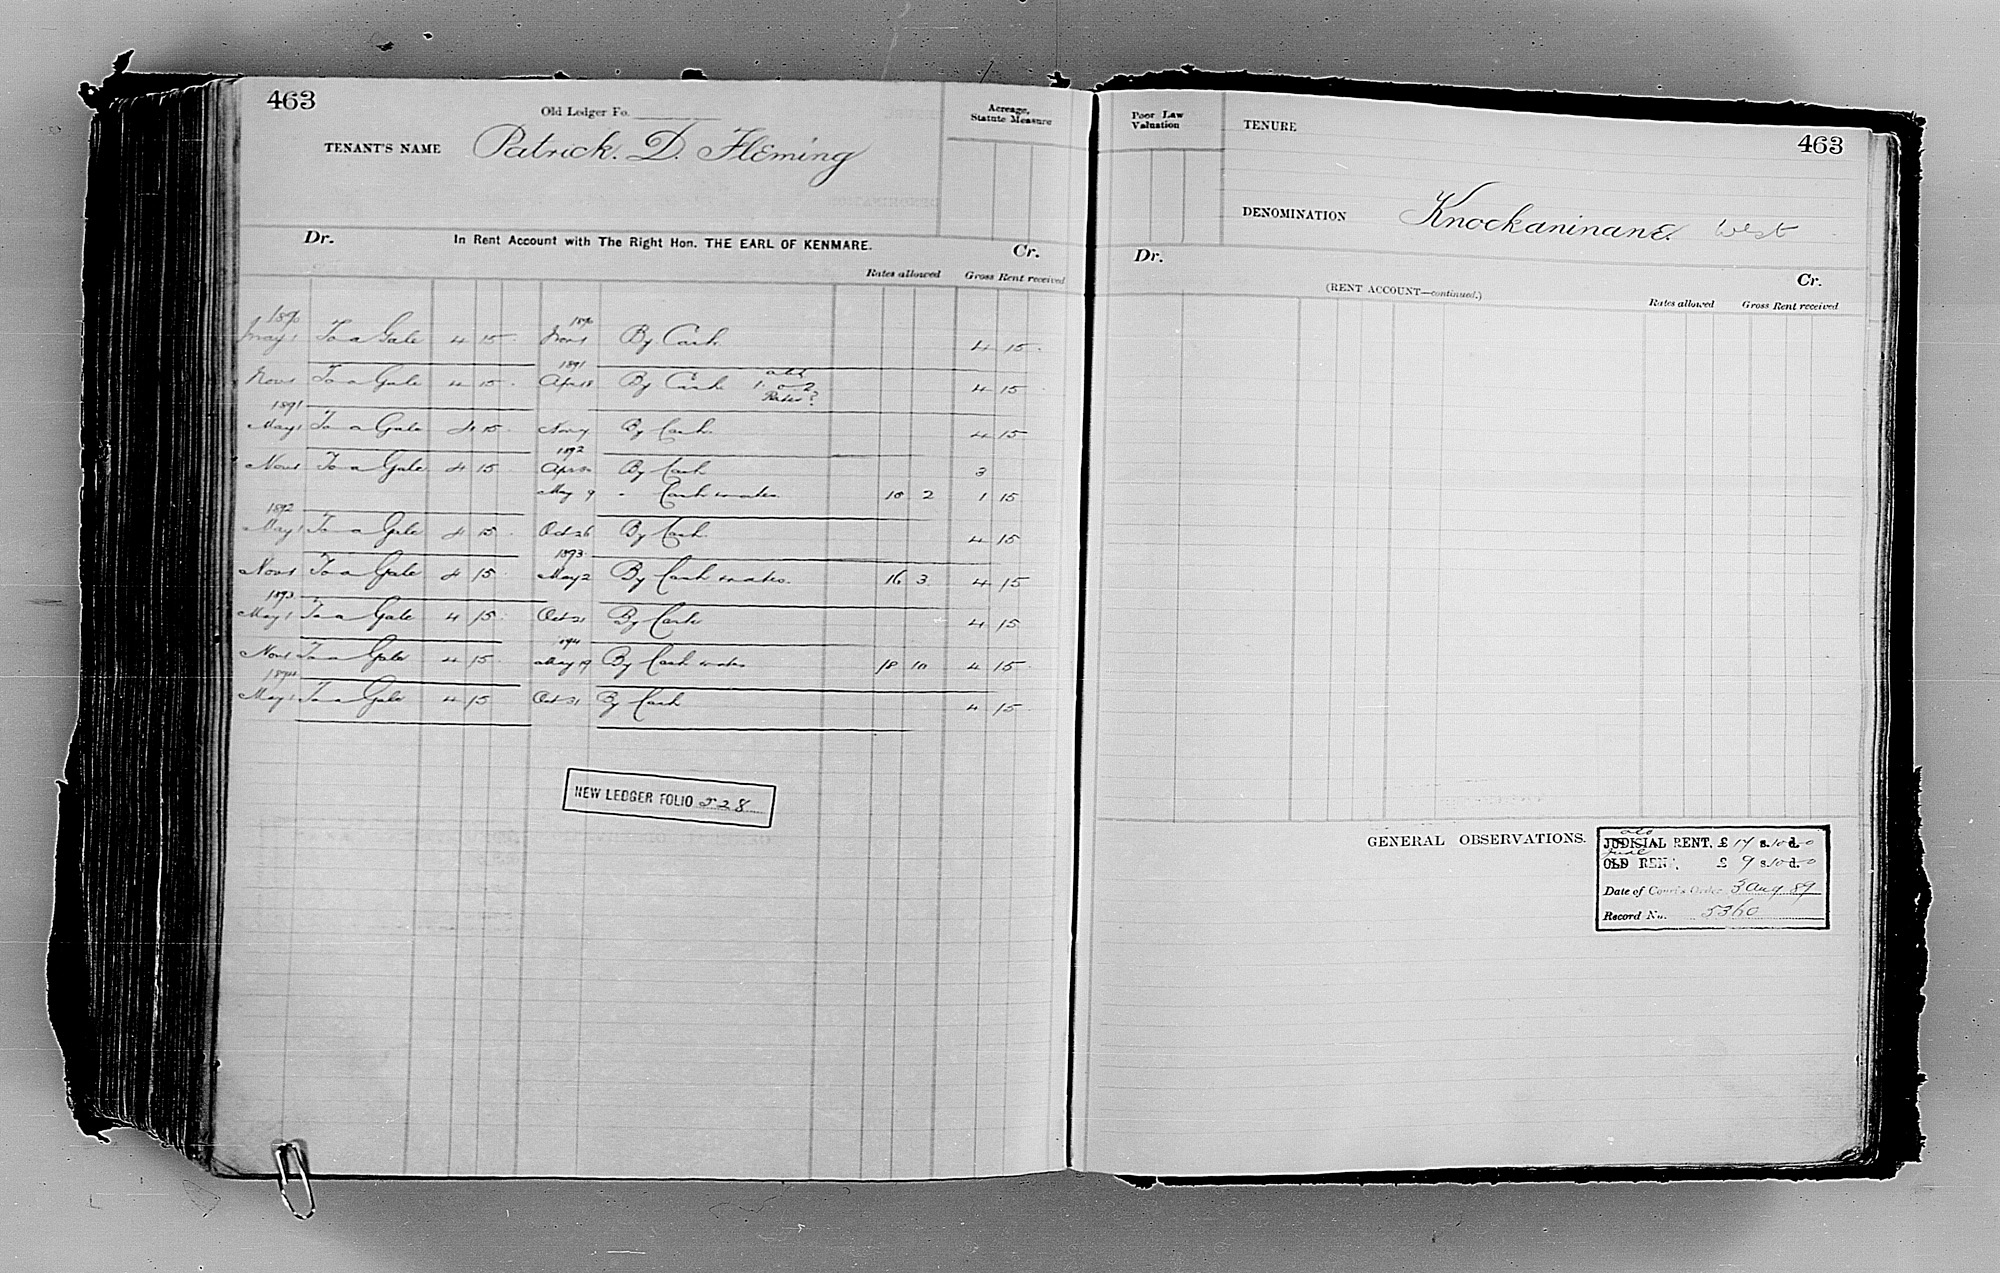 463
Old Ledger Fo.
TENANT'S NAME Patrick. D. Fleming
Acreage, Statute Measure
Dr. In Rent Account with The Right Hon. THE EARL OF KENMARE. Cr.
Rates allowed Gross Rent received
1890 1890
May 1 To a Gale 4 15 Nov 1 By Cash 4 15
1891
Nov 1 To a Gale 4 15 Apr 18 By Cash 4 15
Rates?
1891
May 1 To a Gale 4 15 Nov By Cash 4 15
1892
Nov 1 To a Gale 4 15 Apr By Cash 3
May 9 " Cash & rates 10 2 1 15
1892
May 1 To a Gale 4 15 Oct 26 By Cash 4 15
1893
Nov 1 To a Gale 4 15 May 2 By Cash & rates. 16 3 4 15
1893
May 1 To a Gale 4 15 Oct 21 By Cash 4 15
1894
Nov 1 To a Gale 4 15 May 19 By Cash & rates 18 10 4 15
1894
May 1 To a Gale 4 15 Oct 31 By Cash 4 15
NEW LEDGER FOLIO 528
Poor Law Valuation
TENURE
463
DENOMINATION Knockaninane West
Dr. Cr.
(RENT ACCOUNT—continued.)
Rates allowed Gross Rent received
GENERAL OBSERVATIONS.
old
JUDICIAL RENT, £ 14 s. 10 d. 0
Judl
OLD RENT, £ 9 s. 10 d. 0
Date of Court's Order 3 Aug 89
Record No. 5360